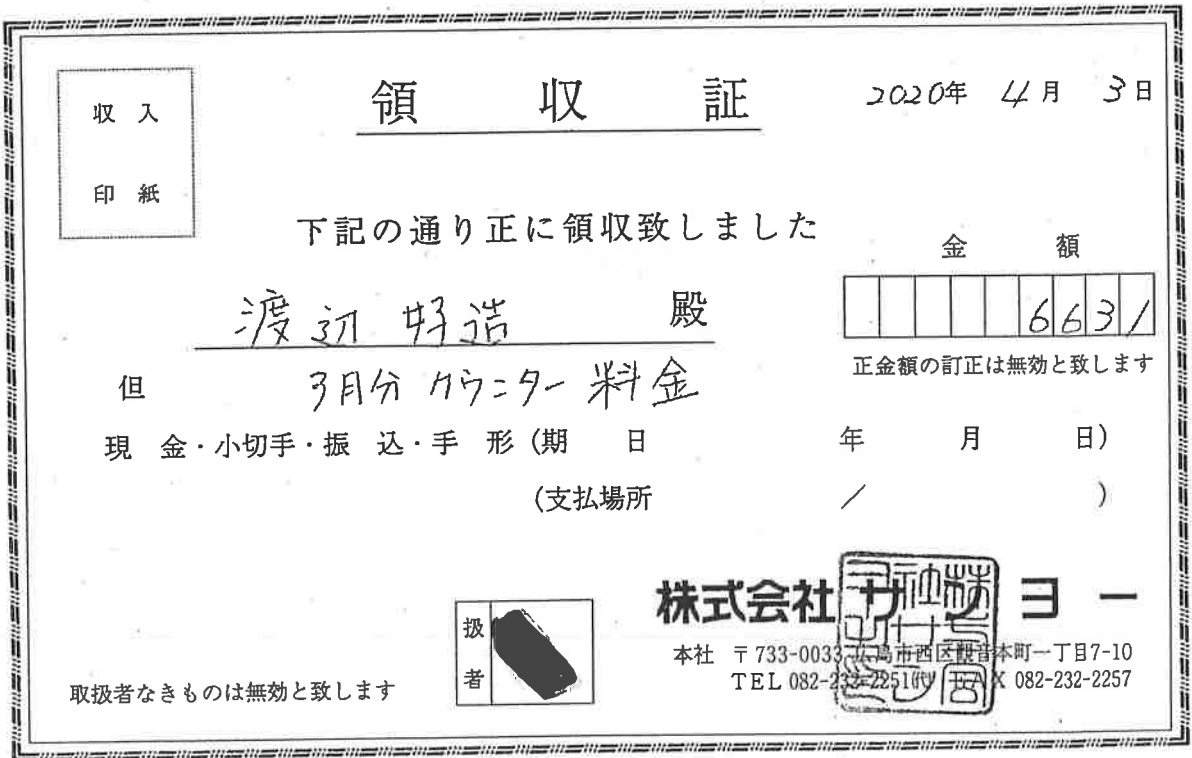 収入
印紙
領収証
2020年 4月 3日
下記の通り正に領収致しました
金額
渡辺 好造 殿
6631
正金額の訂正は無効と致します
但 3月分 カウンター料金
現金・小切手・振込・手形(期日 年 月 日)
(支払場所 / )
株式会社サンヨー
扱者
本社 〒733-0033 広島市西区観音本町一丁目7-10
TEL 082-232-2251(代) FAX 082-232-2257
取扱者なきものは無効と致します